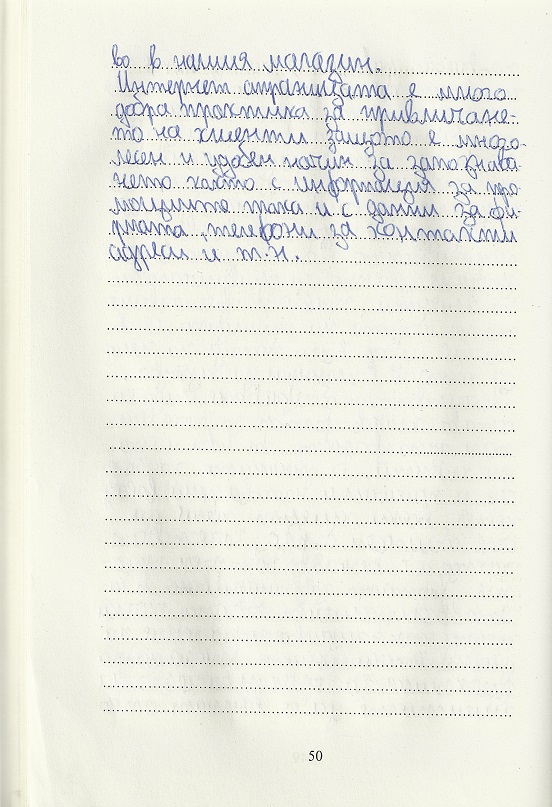 во в нашия магазин.
Интернет страницата е много
добра практика за привличане-
то на клиенти защото е много
лесен и удобен начин за запознава-
нето както с информация за про-
моциите така и с данни за фи-
рмата, телефони за контакти
адреси и т.н.
50